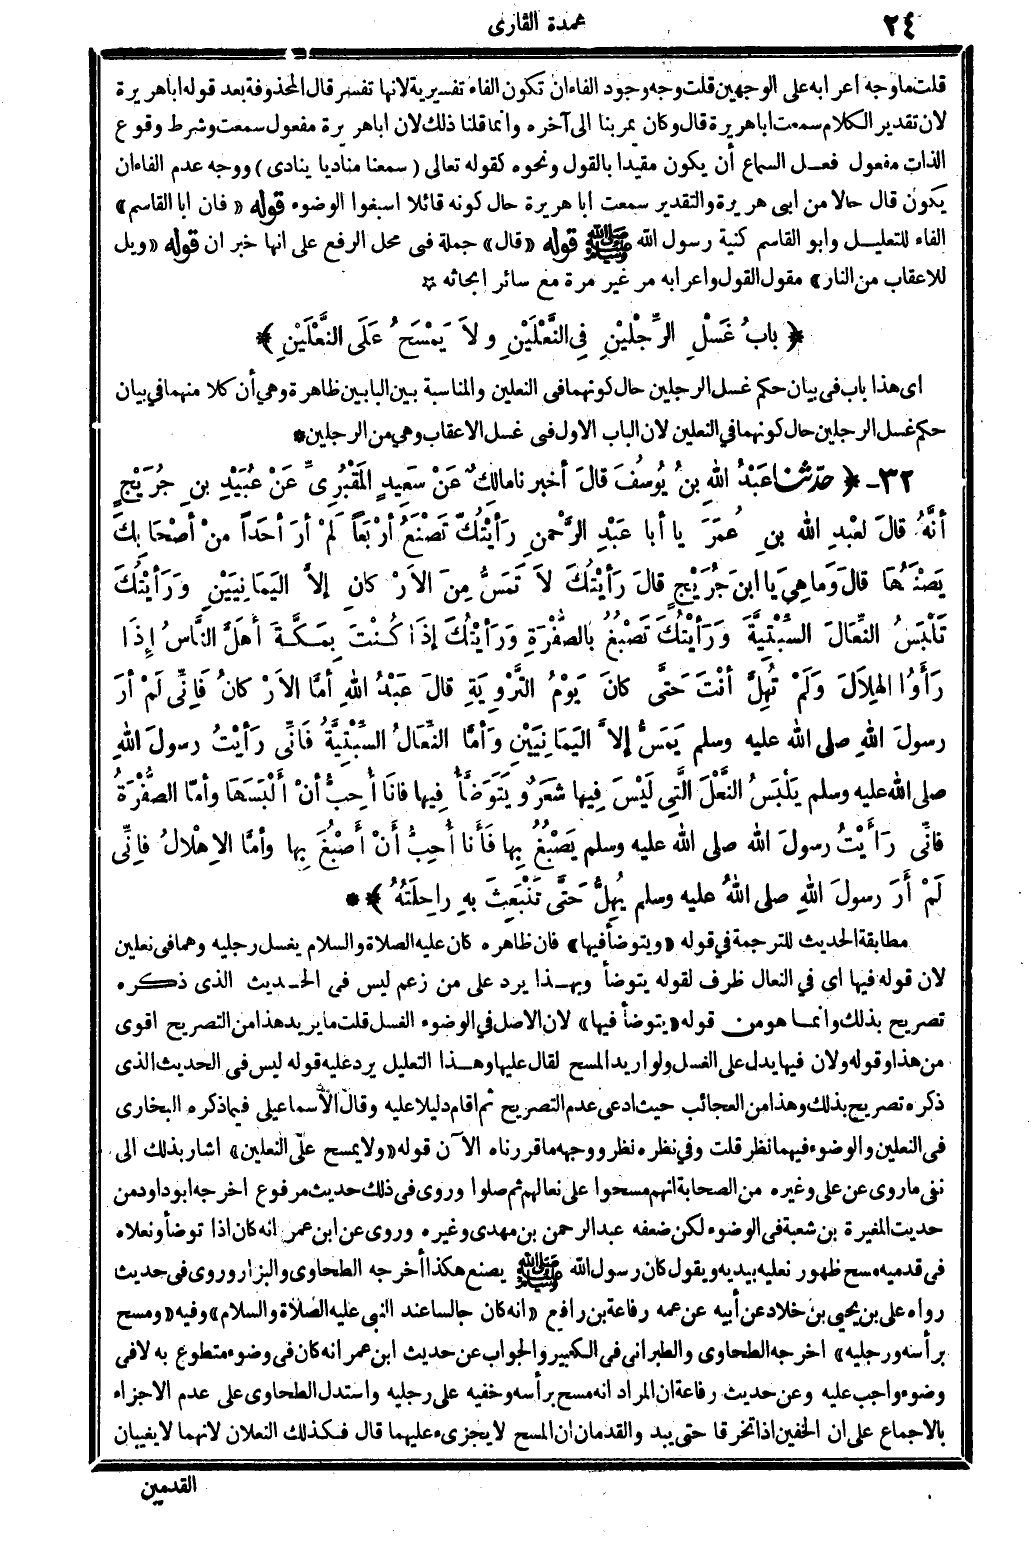 ٢٤
عمدة القارى
قلت ما وجه اعرابه على الوجهين قلت وجه وجود الفاء ان تكون الفاء تفسيرية لانها تفسر قال المحذوفة بعد قوله ابا هريرة
لان تقدير الكلام سمعت ابا هريرة قال وكان يمر بنا الى آخره وانما قلنا ذلك لان ابا هريرة مفعول سمعت وشرط وقوع
الذات مفعول فعل السماع أن يكون مقيدا بالقول ونحوه كقوله تعالى (سمعنا مناديا ينادى) ووجه عدم الفاء ان
يكون قال حالا من ابى هريرة والتقدير سمعت ابا هريرة حال كونه قائلا اسبغوا الوضوء قوله «فان ابا القاسم»
الفاء للتعليل وابو القاسم كنية رسول الله ﷺ قوله «قال» جملة فى محل الرفع على انها خبر ان قوله «ويل
للاعقاب من النار» مقول القول واعرابه مر غير مرة مع سائر ابحاثه ☆
﴿ بابُ غَسْلِ الرِّجْلَيْنِ فِى النَّعْلَيْنِ ولاَ يَمْسَحُ عَلَى النَّعْلَيْنِ ﴾
اى هذا باب فى بيان حكم غسل الرجلين حال كونهما فى النعلين والمناسبة بين البابين ظاهرة وهي أن كلا منهما في بيان
حكم غسل الرجلين حال كونهما في النعلين لان الباب الاول فى غسل الاعقاب وهي من الرجلين*
٣٢ـ ﴿ حدّثنا عَبْدُ اللهِ بنُ يُوسُفَ قالَ أخبرنا مالكٌ عَنْ سَعِيدٍ المَقْبُرِىِّ عَنْ عُبَيْدِ بنِ جُرَيْجٍ
أنَّهُ قالَ لعَبْدِ اللهِ بنِ عُمَرَ يا أبا عَبْدِ الرَّحْمنِ رَأيْتُكَ تَصْنَعُ أرْبَعاً لَمْ أرَ أحَداً مِنْ أصْحَابِكَ
يَصْنَعُهَا قالَ وَما هِيَ يا ابنَ جُرَيْجٍ قالَ رَأيْتُكَ لاَ تَمَسُّ مِنَ الأرْكانِ إلاَّ اليَمَانِيَيْنِ وَرَأيْتُكَ
تَلْبَسُ النِّعَالَ السِّبْتِيَّةَ وَرَأيْتُكَ تَصْبُغُ بالصُّفْرَةِ وَرَأيْتُكَ إذَا كُنْتَ بِمَكَّةَ أهَلَّ النَّاسُ إِذَا
رَأَوُا الهِلاَلَ وَلَمْ تُهِلَّ أنْتَ حَتَّى كانَ يَوْمُ التَّرْوِيَةِ قالَ عَبْدُ اللهِ أمَّا الأرْكانُ فَإنِّى لَمْ أرَ
رسولَ اللهِ صلى الله عليه وسلم يَمَسُّ إلاَّ اليَمَانِيَيْنِ وَأمَّا النِّعَالُ السِّبْتِيَّةُ فَانِّى رَأيْتُ رسولَ اللهِ
صلى الله عليه وسلم يَلْبَسُ النَّعْلَ الَّتِي لَيْسَ فِيها شَعَرٌ ويَتَوَضَّأُ فِيها فانَا أُحِبُّ أنْ ألْبَسَهَا وأمّا الصُّفْرَةُ
فانِّى رَأيْتُ رسولَ اللهِ صلى الله عليه وسلم يَصْبُغُ بِها فَأنا أُحِبُّ أنْ أصْبُغَ بِها وأمَّا الإهْلاَلُ فإنِّى
لَمْ أرَ رسولَ اللهِ صلى اللهُ عليه وسلم يُهِلُّ حَتَّى تَنْبَعِثَ بهِ راحِلَتُهُ ﴾ **
مطابقة الحديث للترجمة في قوله «ويتوضأ فيها» فان ظاهره كان عليه الصلاة والسلام يغسل رجليه وهما فى نعلين
لان قوله فيها اى في النعال ظرف لقوله يتوضأ وبهذا يرد على من زعم ليس فى الحديث الذى ذكره
تصريح بذلك وانما هو من قوله «يتوضأ فيها» لان الاصل في الوضوء الغسل قلت ما يريد هذا من التصريح اقوى
من هذا وقوله ولان فيها يدل على الغسل ولو اريد المسح لقال عليها وهذا التعليل يرد عليه قوله ليس فى الحديث الذى
ذكره تصريح بذلك وهذا من العجائب حيث ادعى عدم التصريح ثم اقام دليلا عليه وقال الأسماعيلى فيما ذكره البخارى
فى النعلين والوضوء فيهما نظر قلت وفي نظره نظر ووجهه ما قررناه الآن قوله «ولا يمسح على النعلين» اشار بذلك الى
نفى ما روى عن على وغيره من الصحابة انهم مسحوا على نعالهم ثم صلوا وروى فى ذلك حديث مرفوع اخرجه ابو داود من
حديث المغيرة بن شعبة فى الوضوء لكن ضعفه عبد الرحمن بن مهدى وغيره وروى عن ابن عمر انه كان اذا توضأ ونعلاه
فى قدميه مسح ظهور نعليه بيديه ويقول كان رسول الله ﷺ يصنع هكذا أخرجه الطحاوى والبزار وروى فى حديث
رواه على بن يحيى بن خلاد عن أبيه عن عمه رفاعة بن رافع «انه كان جالسا عند النبى عليه الصلاة والسلام» وفيه «ومسح
برأسه ورجليه» اخرجه الطحاوى والطبرانى فى الكبير والجواب عن حديث ابن عمر انه كان فى وضوء متطوع به لا فى
وضوء واجب عليه وعن حديث رفاعة ان المراد انه مسح برأسه وخفيه على رجليه واستدل الطحاوى على عدم الاجزاء
بالاجماع على ان الخفين اذا تخرقا حتى يبدو القدمان ان المسح لا يجزىء عليهما قال فكذلك النعلان لانهما لا يغيبان
القدمين